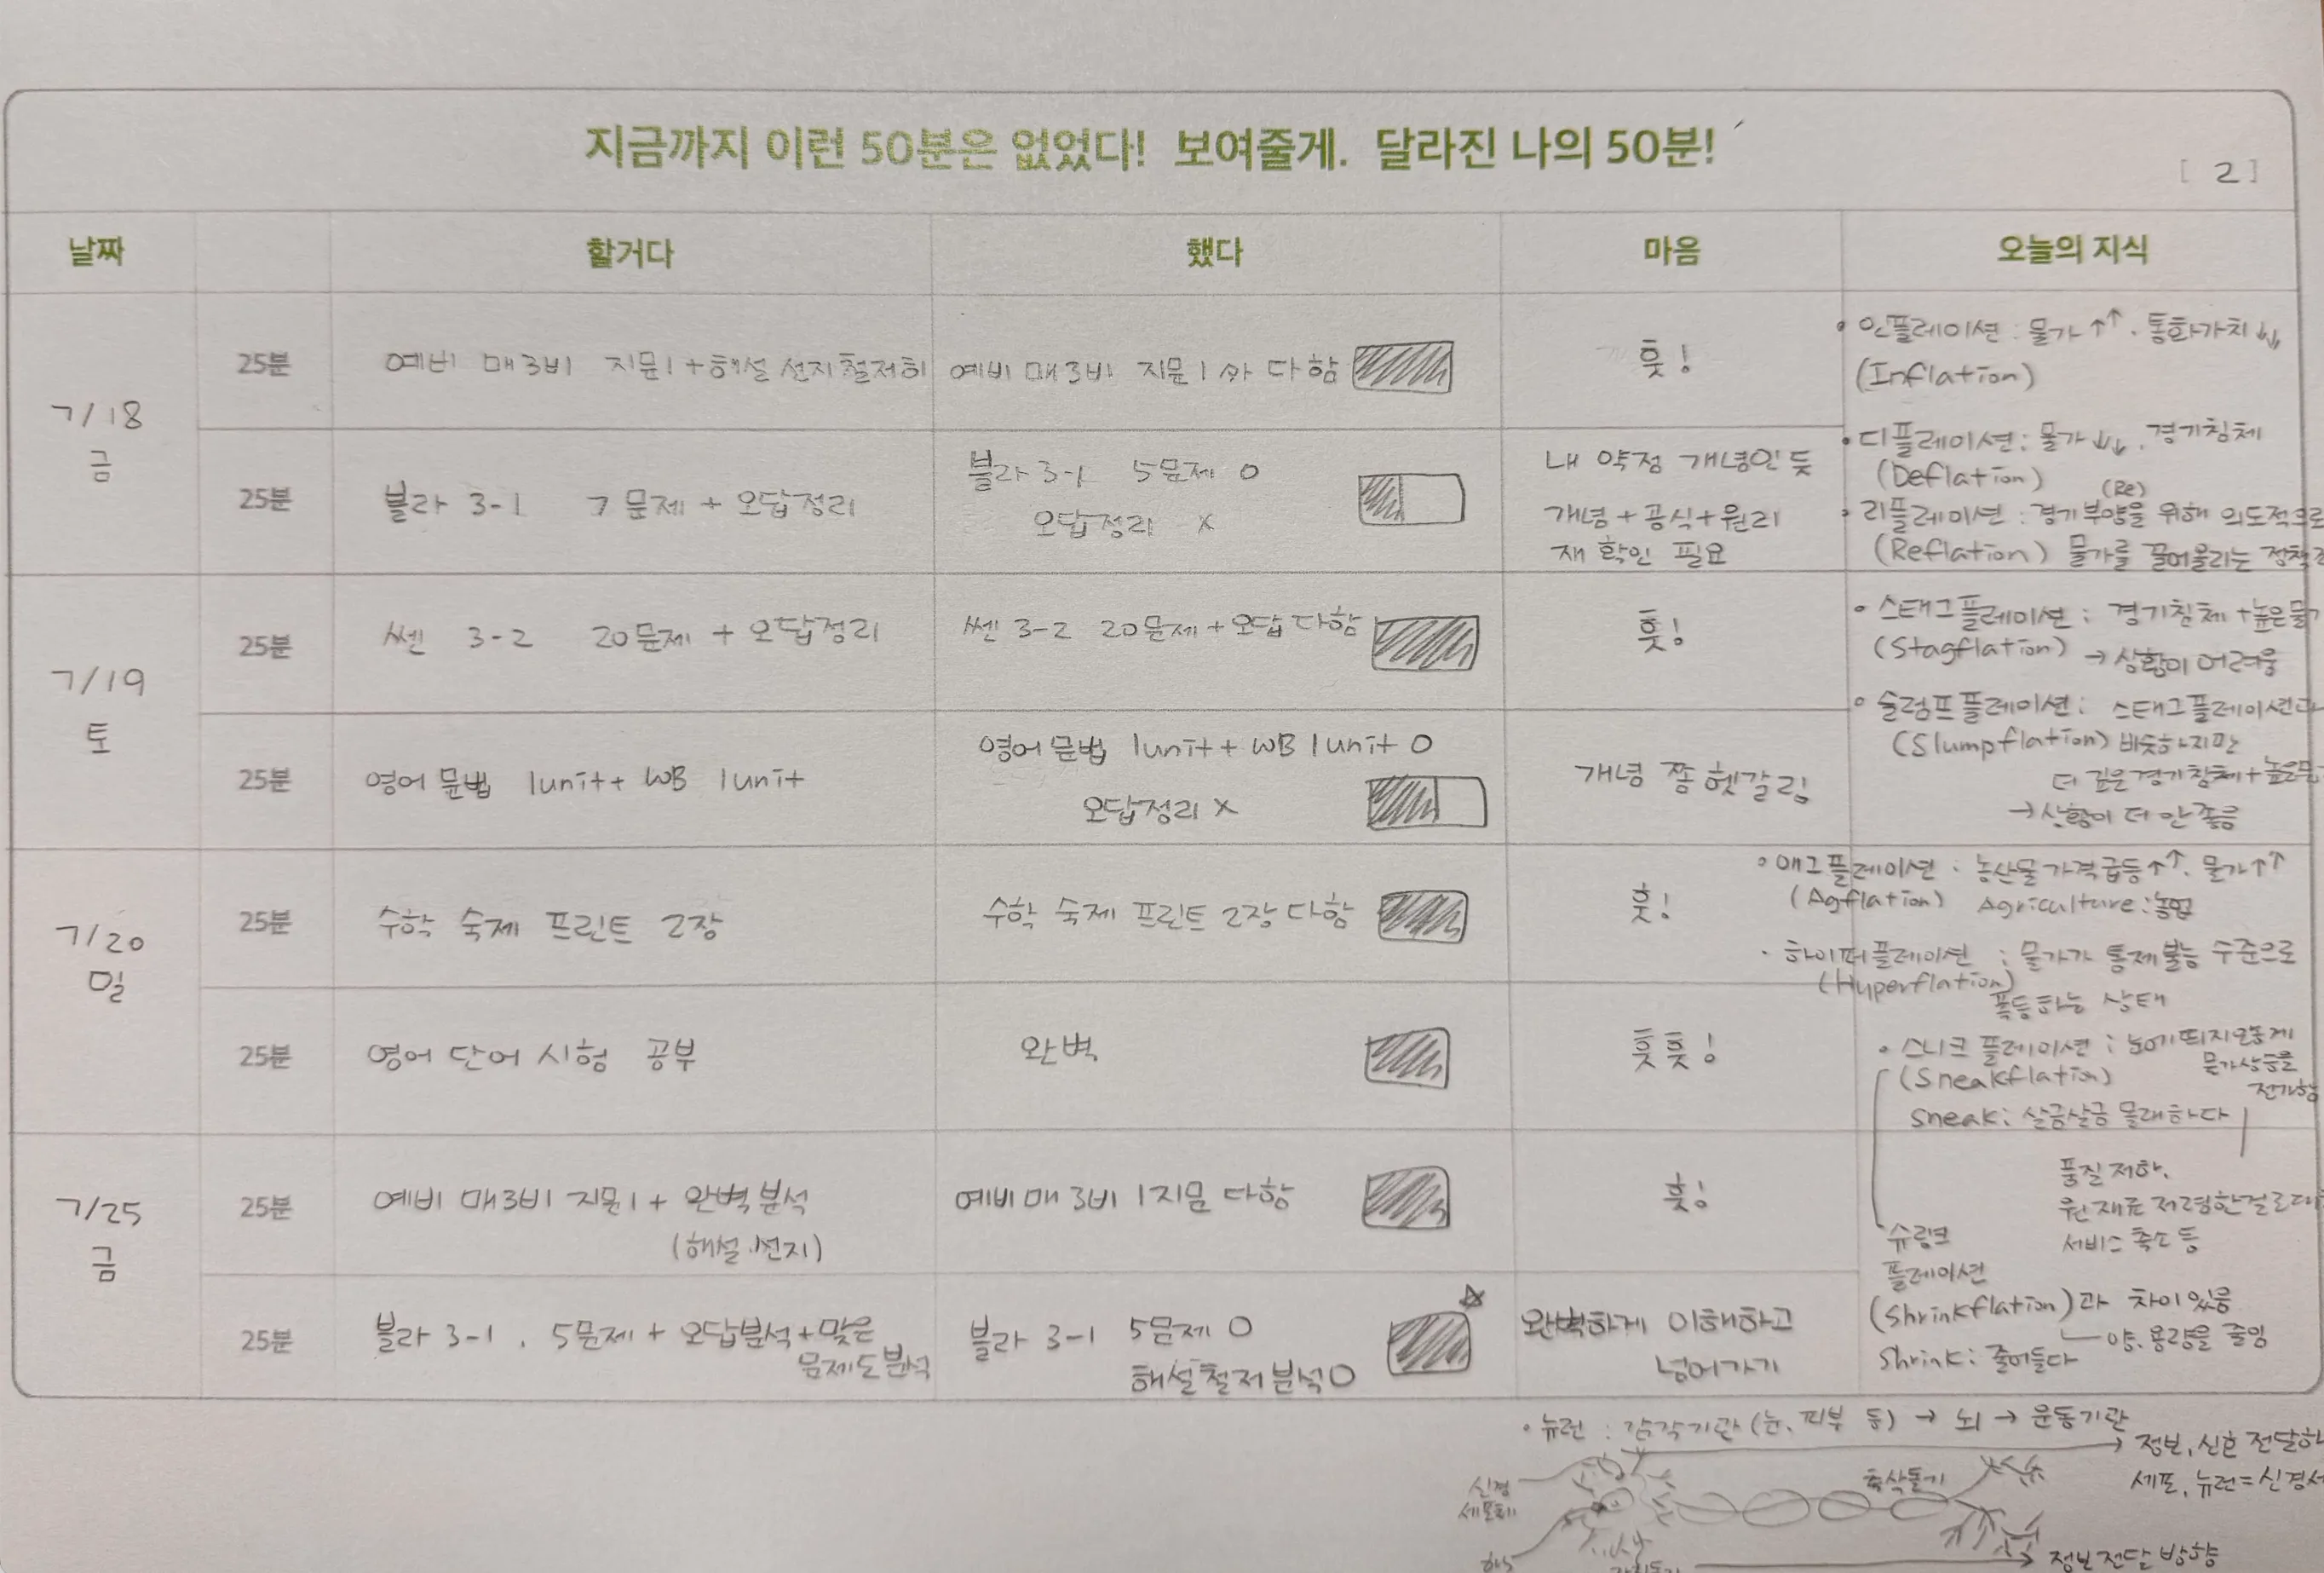 지금까지 이런 50분은 없었다! 보여줄게. 달라진 나의 50분!
[ 2 ]
날짜 할거다 했다 마음 오늘의 지식
7/18
금
25분
예비 매3비 지문1+해설 선지철저히
예비 매3비 지문1 다함
훗!
25분
블라 3-1 7문제 + 오답정리
블라 3-1 5문제 O
오답정리 X
내 약점 개념인 듯
개념+공식+원리
재 확인 필요
• 인플레이션 : 물가↑↑. 통화가치↓↓
(Inflation)
• 디플레이션 : 물가↓↓. 경기침체
(Deflation)
(Re)
• 리플레이션 : 경기부양을 위해 의도적으로
(Reflation) 물가를 끌어올리는
7/19
토
25분
쎈 3-2 20문제 + 오답정리
쎈 3-2 20문제+오답 다함
훗!
25분
영어 문법 1unit+ WB 1unit
영어 문법 1unit+ WB 1unit O
오답정리 X
개념 쫌 헷갈림
• 스태그플레이션 : 경기침체 +높은물가
(Stagflation) → 상황이 어려움
• 슬럼프플레이션 : 스태그플레이션과
(Slumpflation) 비슷하지만
더 깊은 경기침체+
→상황이 더 안 좋음
7/20
일
25분
수학 숙제 프린트 2장
수학 숙제 프린트 2장 다함
훗!
25분
영어 단어 시험 공부
완벽
훗훗!
• 애그플레이션 : 농산물 가격급등↑↑. 물가↑↑
(Agflation) Agriculture : 농업
• 하이퍼플레이션 : 물가가 통제불능 수준으로
(Hyperflation)
폭등하는 상태
• 스니크 플레이션 : 눈에 띄지않게
(Sneakflation) 물가상승을
전가함
Sneak : 살금살금 몰래하다
7/25
금
25분
예비 매3비 지문1 + 완벽분석
(해설.선지)
예비 매3비 1지문 다함
훗!
25분
블라 3-1 . 5문제 + 오답분석+맞은
문제도분석
블라 3-1 5문제 O
해설철저분석O
완벽하게 이해하고
넘어가기
품질 저하.
원재료 저렴한걸로
서비스 축소 등
슈링크
플레이션
(Shrinkflation)과 차이있음
양.용량을 줄임
Shrink : 줄어들다
• 뉴런 : 감각기관(눈, 피부 등) → 뇌 → 운동기관
→ 정보, 신호 전달하
세포, 뉴런=신경
신경
세포체
축삭돌기
정보전달 방향